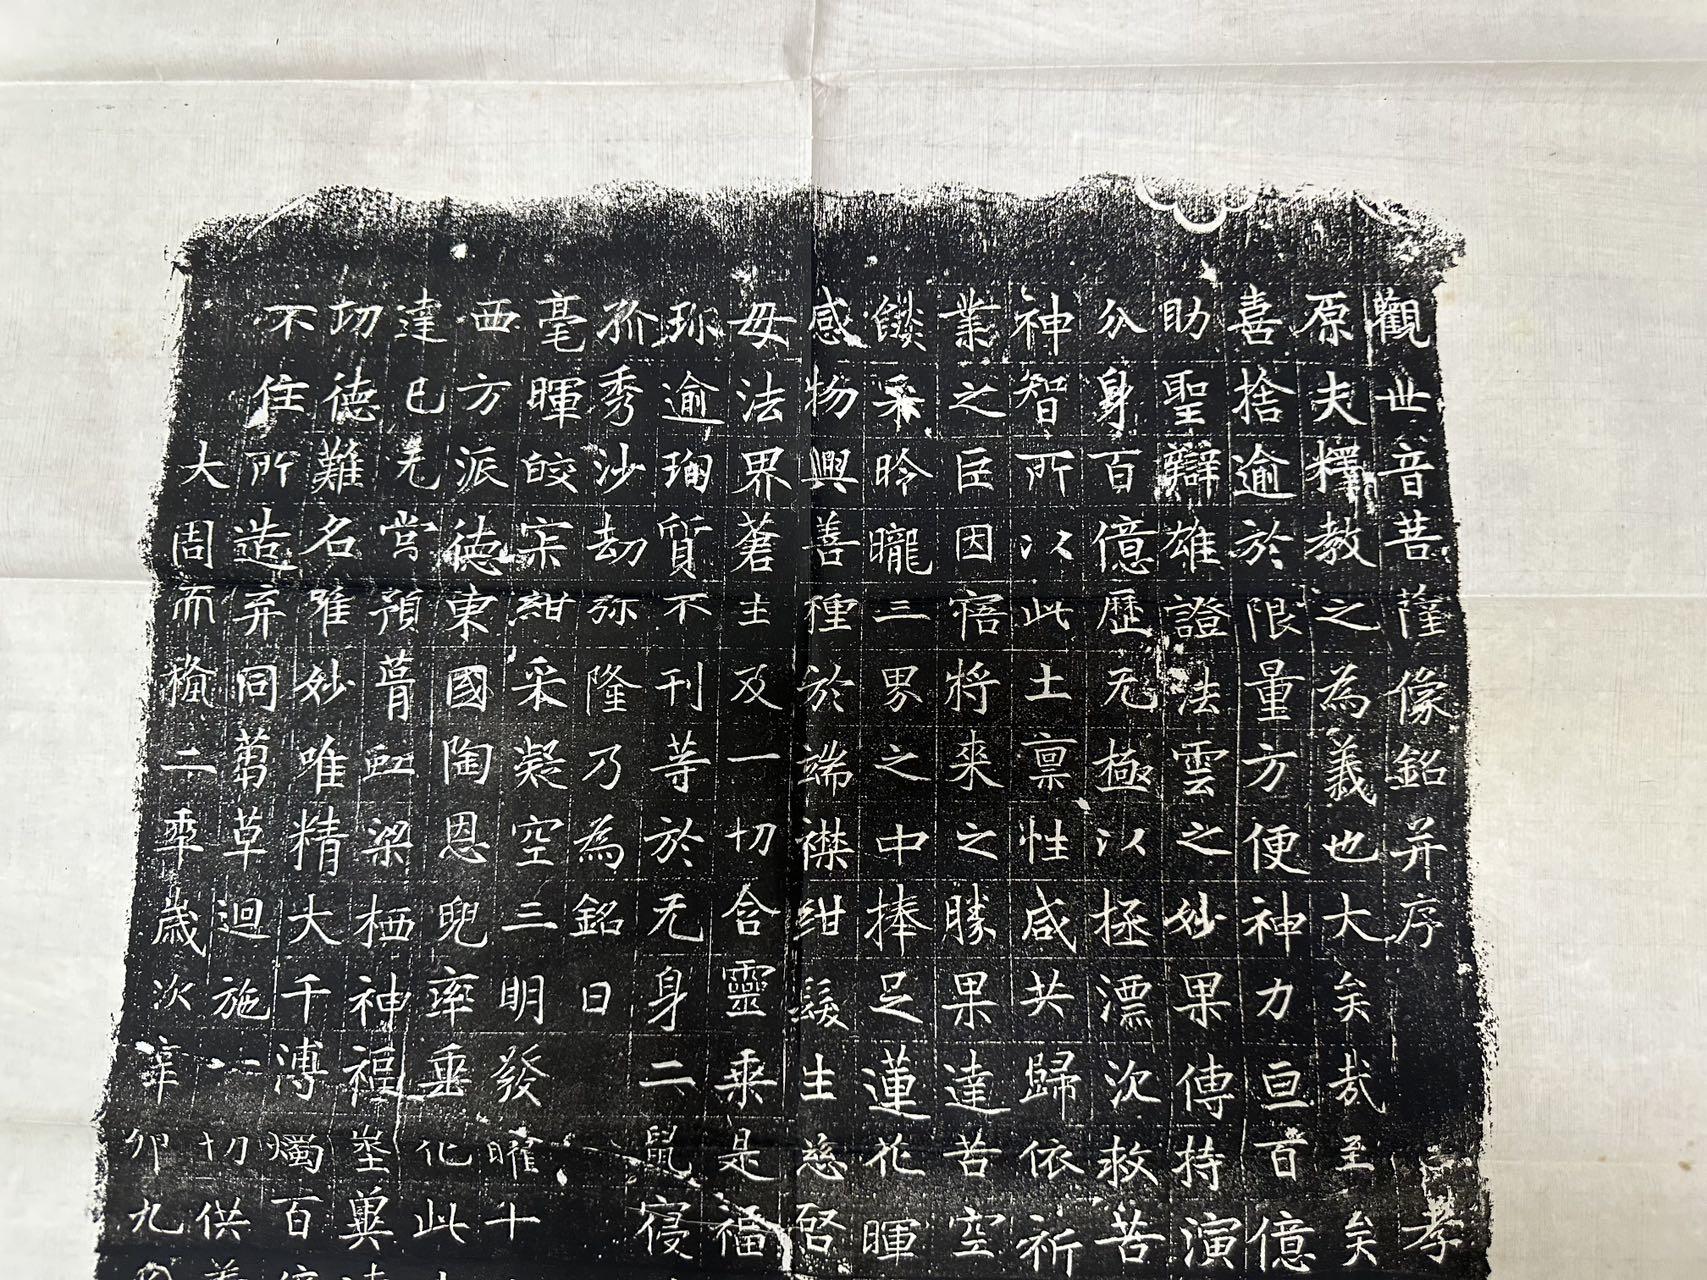 觀世音菩薩像銘并序 孝
原夫釋教之為義也大矣哉至矣
喜捨逾於限量方便神力亘百億
助聖辯雄證法雲之妙果傳持演
分身百億歷无極以拯漂沉救苦
神智所以此土稟性咸共歸依祈
業之臣因寤將來之勝果達苦空
餤采昤曨三界之中捧足蓮花暉
感物興善種於端襟紺髮生慈啓
毋法界蒼生及一切含靈乘是福
珎逾琱質不刊等於无身二鼠寑
孤秀沙劫弥隆乃為銘曰
毫暉皎 紺采凝空三明發曜十
西方派德東國陶恩睨率垂化此
達已无 預 梁栖神福 冀
切德難名唯妙唯精大千溥燭百
不住所造弃同蒭草迴施一切供
大周而 二秊歲次辛卯九